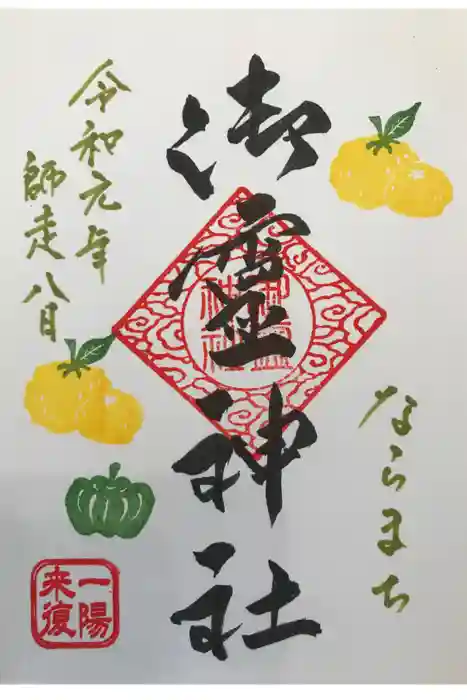 ならまち
御霊神社
御霊神社
令和元年
師走八日
一陽来復